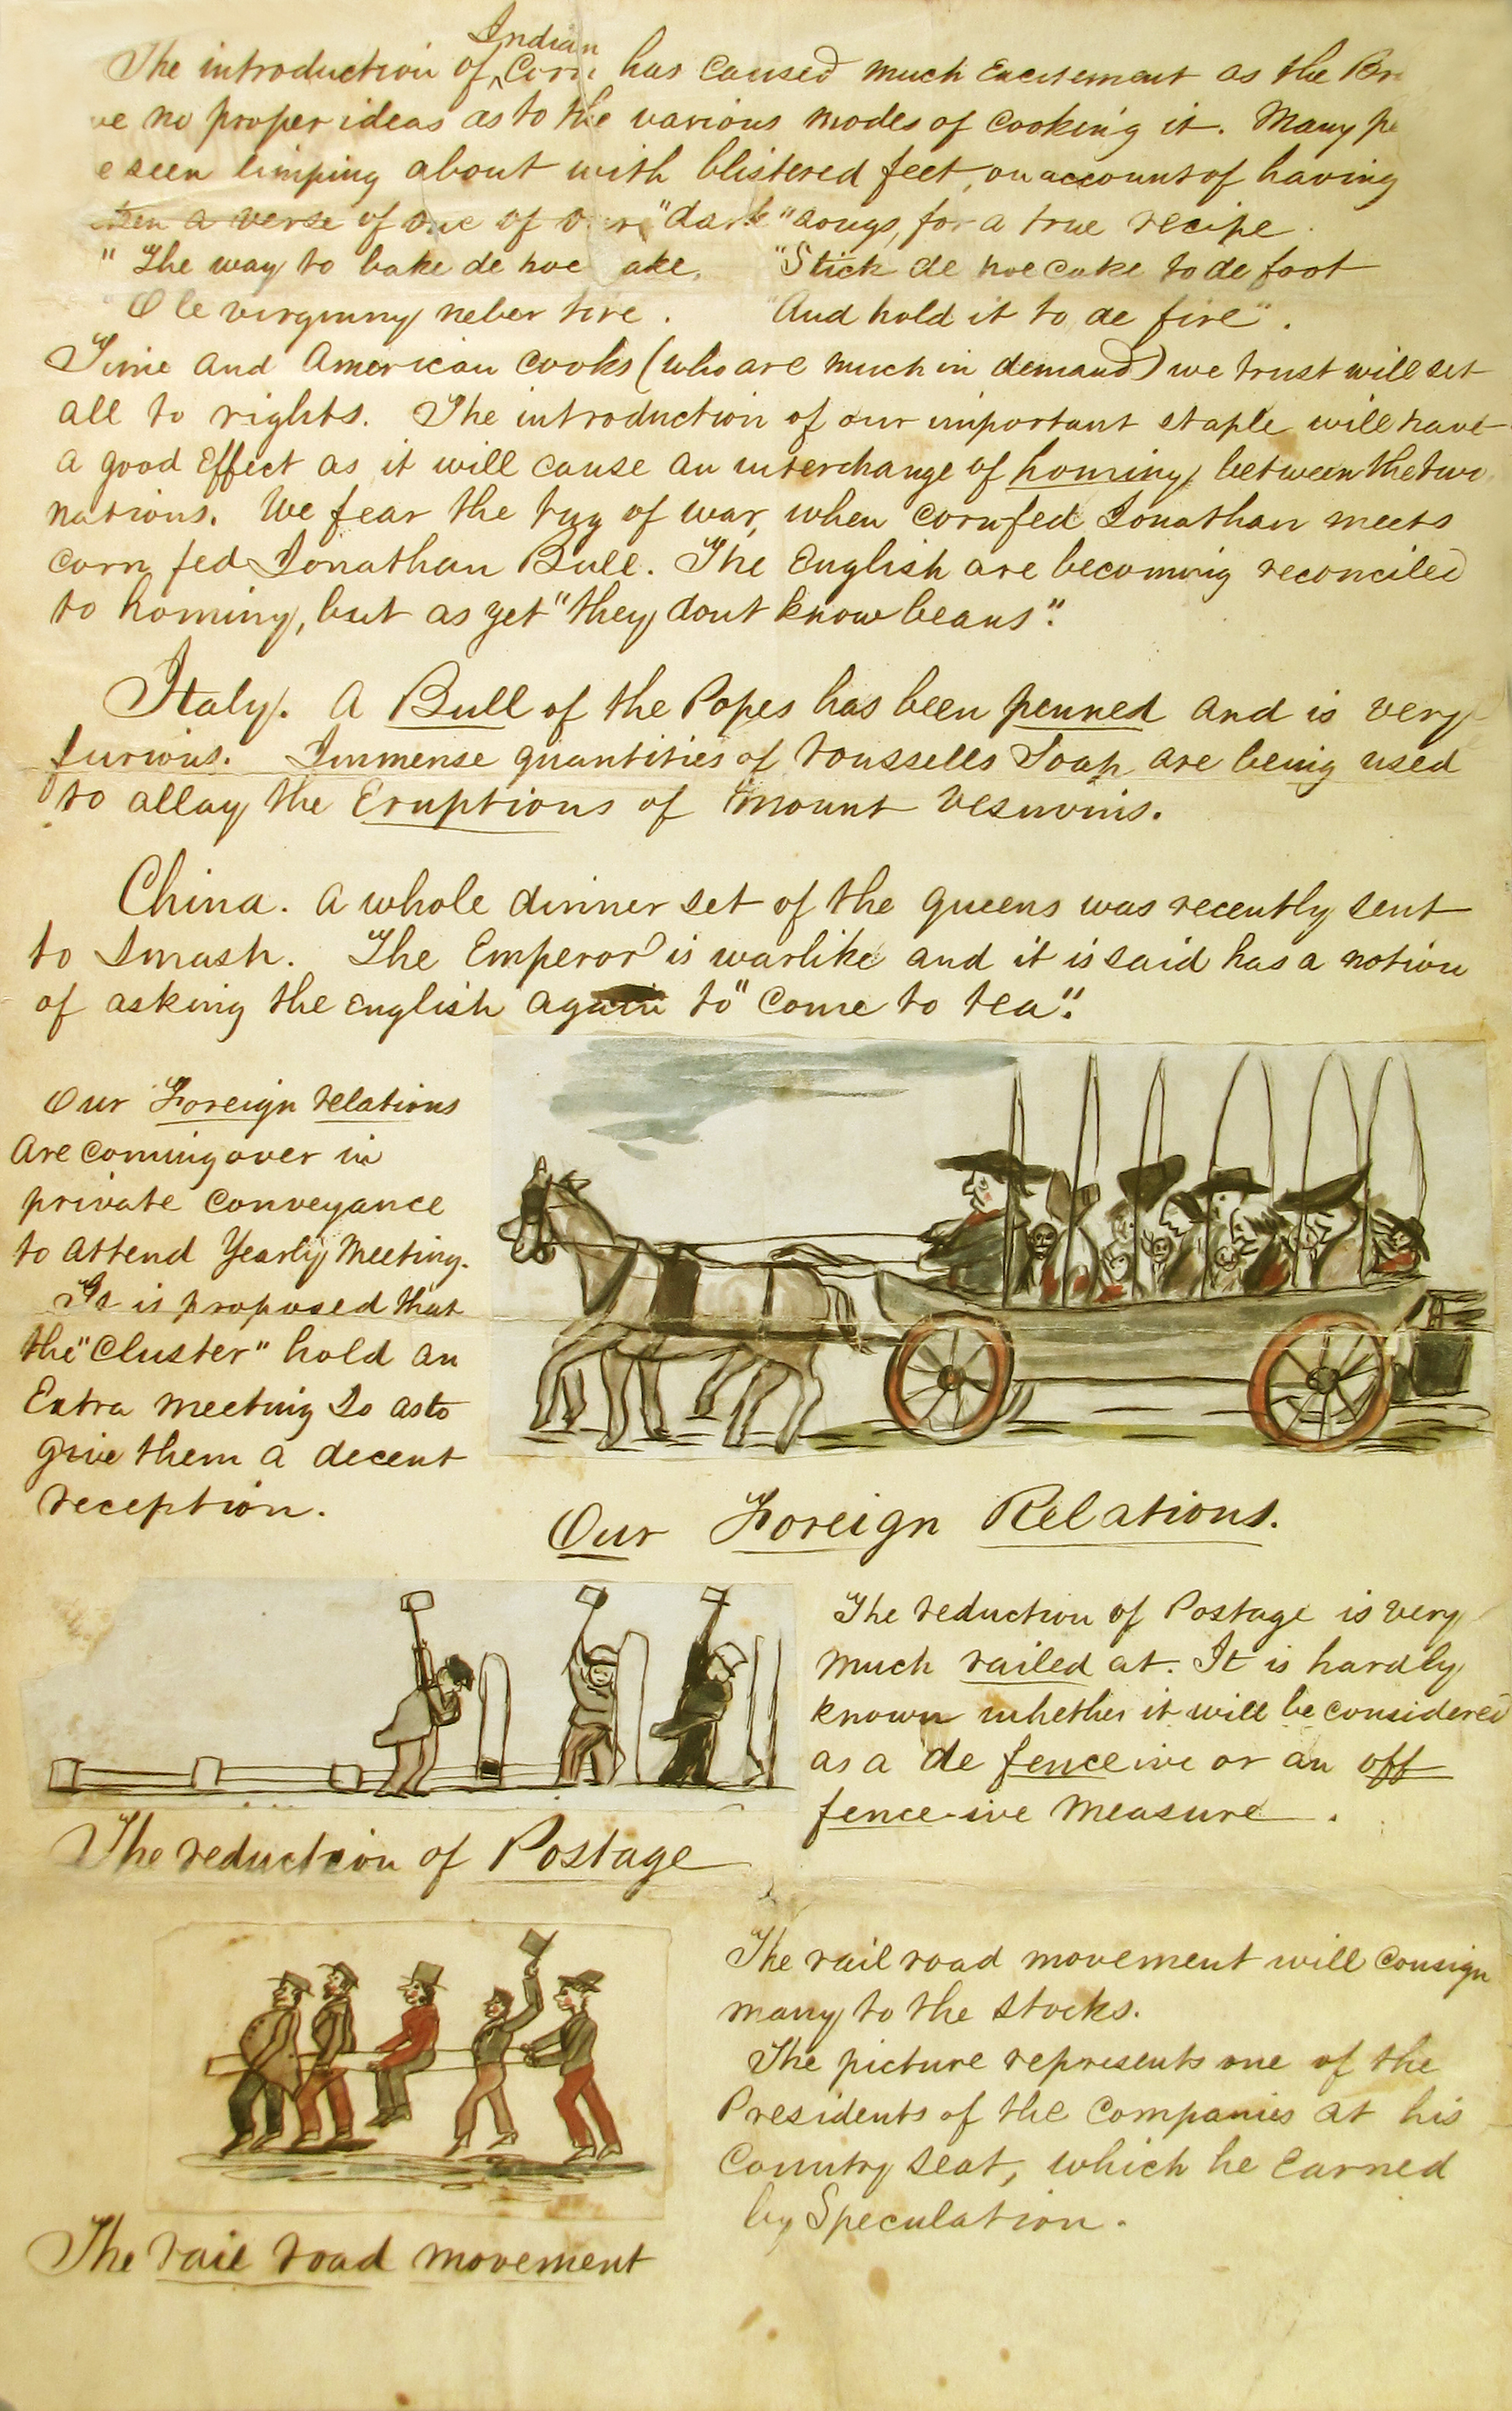 The introduction of Indian Corn has caused much excitement as the Br
ve no proper ideas as to the various modes of cooking it. Many pe
e seen limping about with blistered feet, on account of having
a verse of one of "dark" songs, for a true recipe.
"The way to bake de hoe ake, "Stick de hoe cake to de foot
Ole virginny neber tire. "And hold it to de fire".
Time and American cooks (who are much in demand) we trust will set
all to rights. The introduction of our important staple will have
a good Effect as it will cause an interchange of hominy between the two
nations. We fear the tug of war, when cornfed Jonathan meets
corn fed Jonathan Bull. The English are becoming reconciled
to hominy, but as yet "they dont know beans".
Italy. A Bull of the Popes has been penned and is very
furious. Immense quantities of Rousselles Soap are being used
to allay the Eruptions of Mount Vesuvius.
China. A whole dinner set of the queens was recently sent
to Smash. The Emperor is warlike and it is said has a notion
of asking the English again to "Come to tea".
Our Foreign relations
Are coming over in
private conveyance
to attend Yearly Meeting.
It is proposed that
the "Cluster" hold an
Extra meeting So as to
give them a decent
reception.
Our Foreign Relations.
The reduction of Postage is very
much railed at. It is hardly
known whether it will be considered
as a de fence ive or an off
fence-ive measure.
The reduction of Postage
The rail road movement will consign
many to the stocks.
The picture represents one of the
Presidents of the Companies at his
Country seat, which he Earned
by Speculation.
The rail road movement